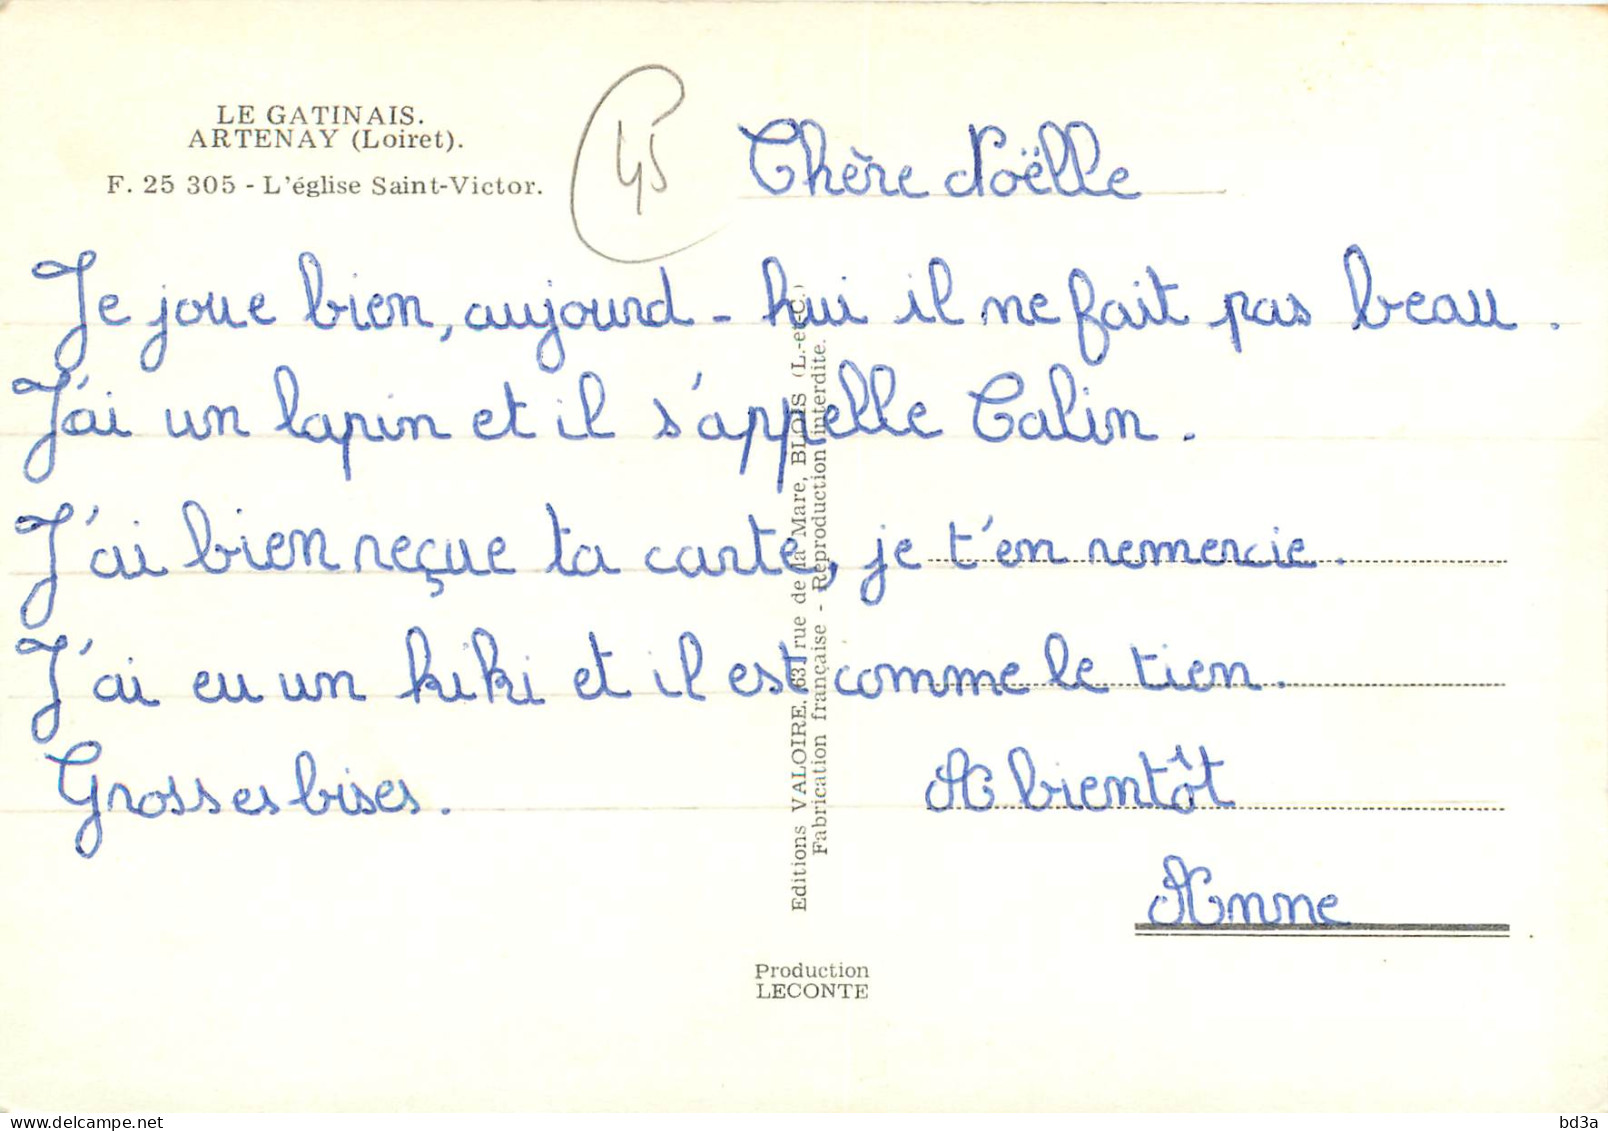 LE GATINAIS.
ARTENAY (Loiret).
F. 25 305 - L'église Saint-Victor.
45
Chère Noëlle
Je joue bien, aujourd-hui il ne fait pas beau.
J'ai un lapin et il s'appelle Calin.
J'ai bien reçue ta carte, je t'en remercie.
J'ai eu un kiki et il est comme le tien.
Grosses bises.
A bientôt
Anne
Editions VALOIRE, 63, rue de la Mare, BLOIS (L.-et-C.)
Fabrication française - Reproduction interdite.
Production
LECONTE
bd3a